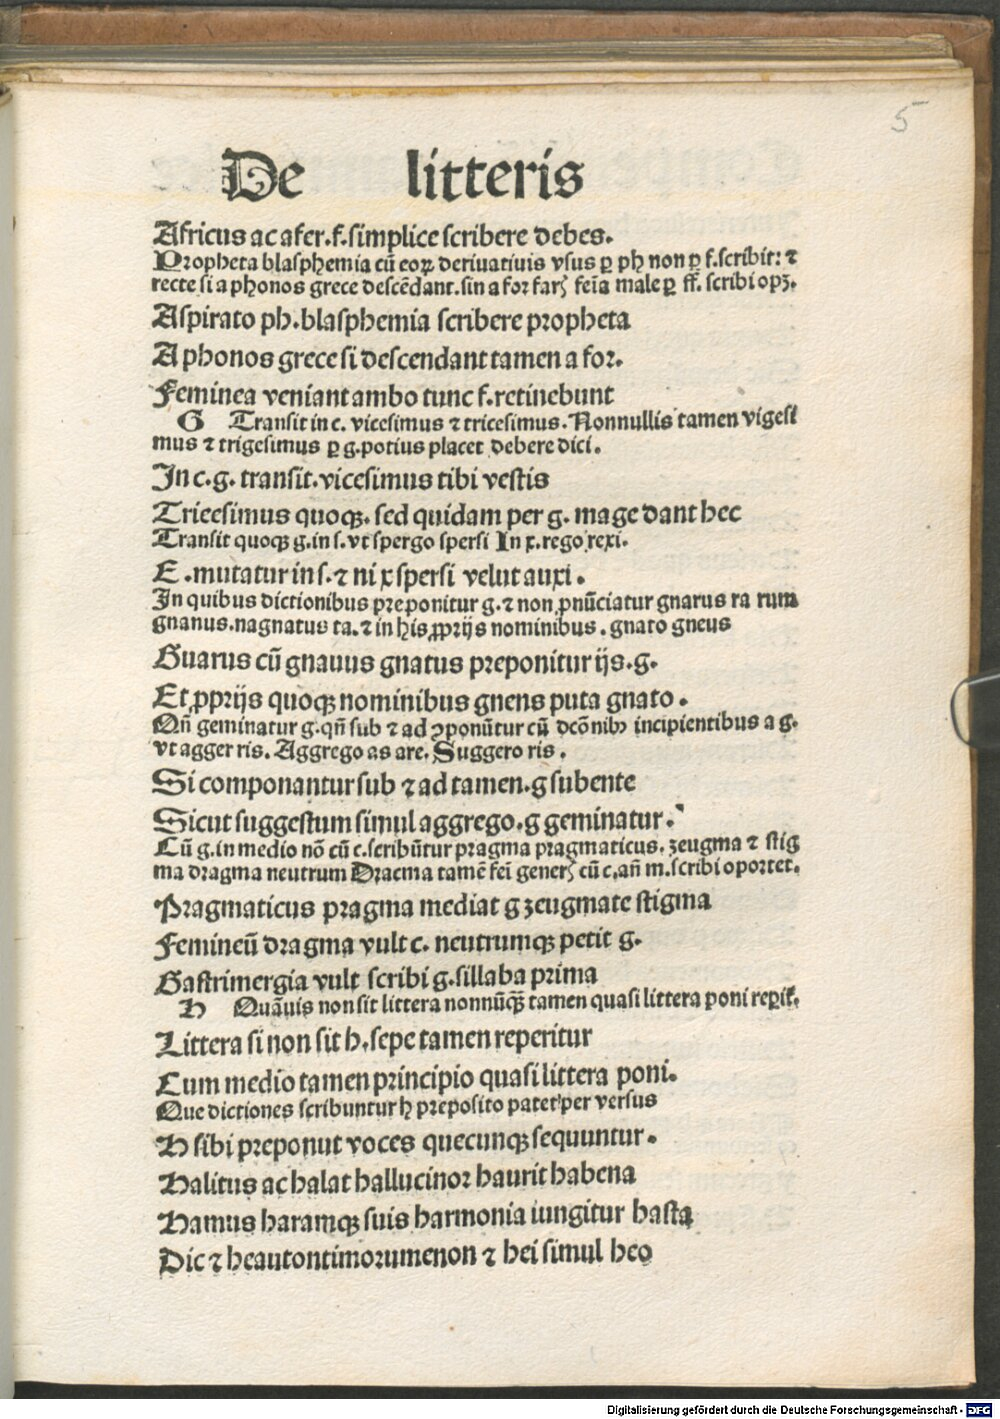 5
De litteris
Africus ac afer.f.simplice scribere debes.
Propheta blasphemia cũ eoꝝ deriuatiuis vsus ꝑ ph non ꝑ f.scribit: ⁊
recte si a phonos grece descẽdant.sin a for faris feĩa male ꝑ ff. scribi opꝫ.
Aspirato ph.blasphemia scribere propheta
A phonos grece si descendant tamen a for.
Feminea veniant ambo tunc f.retinebunt
G Transit in c. vicesimus ⁊ tricesimus. Nonnullis tamen vigesi
mus ⁊ trigesimus ꝑ g.potius placet debere dici.
In c.g. transit.vicesimus tibi vestis
Tricesimus quoqꝫ. sed quidam per g. mage dant hec
Transit quoqꝫ g.in s.vt spergo spersi In x.rego rexi.
E .mutatur in s.⁊ ni x spersi velut auxi.
In quibus dictionibus preponitur g.⁊ non ꝓnũciatur gnarus ra rum
gnanus.nagnatus ta.⁊ in his ꝓprijs nominibus. gnato gneus
Guarus cũ gnauus gnatus preponitur ijs.g.
Et ꝓprijs quoqꝫ nominibus gnens puta gnato.
Qñ geminatur g.qñ sub ⁊ ad ꝯponũtur cũ dcõnibꝰ incipientibus a g.
vt agger ris. Aggrego as are. Suggero ris.
Si componantur sub ⁊ ad tamen.g subente
Sicut suggestum simul aggrego.g geminatur.
Cũ g.in medio nõ cũ c.scribũtur pragma pragmaticus. zeugma ⁊ stig
ma dragma neutrum Dracma tamẽ feĩ generꝭ cũ c.añ m.scribi oportet.
Pragmaticus pragma mediat g zeugmate stigma
Femineũ dragma vult c. neutrumqꝫ petit g.
Gastrimergia vult scribi g.sillaba prima
H Quãuis non sit littera nonnũqꝫ tamen quasi littera poni reperit.
Littera si non sit h.sepe tamen reperitur
Cum medio tamen principio quasi littera poni.
Que dictiones scribuntur h preposito patet per versus
H sibi preponut voces quecunqꝫ sequuntur.
Halitus ac halat hallucinor haurit habena
Hamus haramqꝫ suis harmonia iungitur hasta
Dic ⁊ heautontimorumenon ⁊ hei simul heo
Digitalisierung gefördert durch die Deutsche Forschungsgemeinschaft - DFG